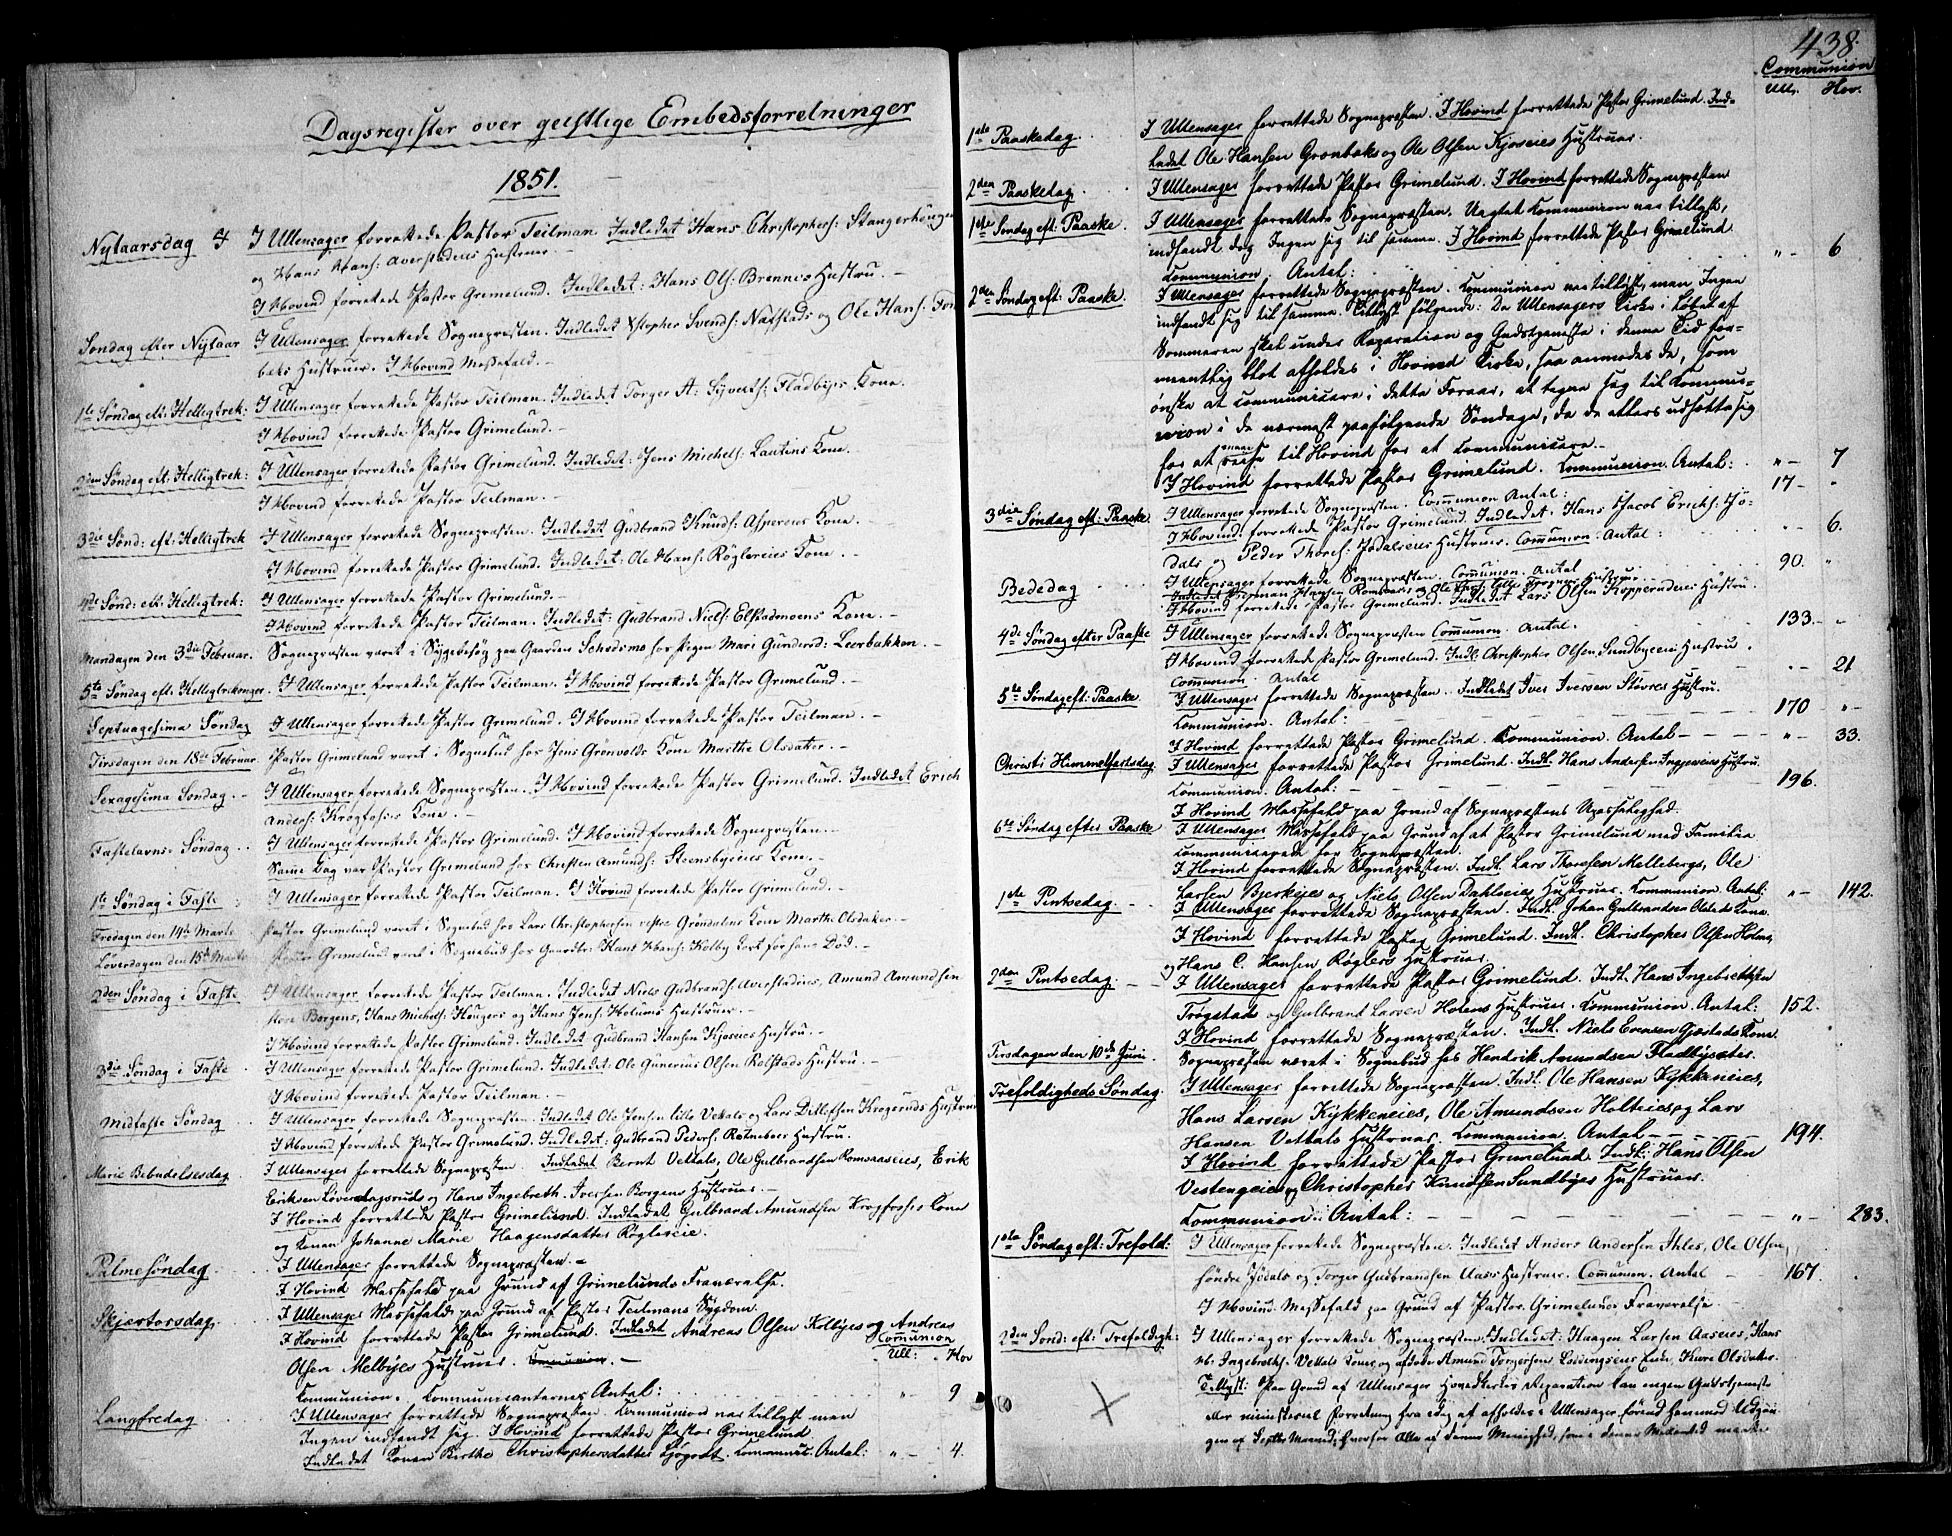 Dagsregister over geistlige Embedsforretninger
1851.
Nytaarsdag I Ullensager forrettede Pastor Teilman. Indledet Hans Christophers: Stangerhöugen
og Hans Hans: Averstadeies Hustruer. –
I Hovind forrettede Pastor Grimelund. Indledet: Hans Ols: Brennes Hustru. –
Søndag efter Nytaar I Ullensager forrettede Sognepræsten. Indledet Xstopher Svends: Nafstads og Ole Hans:
baks Hustruer. I Hovind Messefald. –
1ste Søndag eft: Helligtrek: I Ullensager forrettede Pastor Teilman. Indledet Torger A: Syverts: Fladbyes Kone.
I Hovind forrettede Pastor Grimelund. –
2den Søndag eft: Helligtrek: I Ullensager forrettede Pastor Grimelund. Indledet: Jens Michels: Lautins Kone.
I Hovind forrettede Pastor Teilman. –
3die Sønd: eft: Helligtrek I Ullensager forrettede Sognepræsten. Indledet: Gudbrand Knuds: Aspereies Kone. –
I Hovind forrettede Pastor Grimelund. Indledet: Ole Hans: Röglereies Kone. –
4de Sønd: eft: Helligtrek: I Ullensager forrettede Pastor Grimelund. –
I Hovind forrettede Pastor Teilman. Indledet: Gudbrand Niels: Elstadmoens Kone. –
Mandagen den 3die Februar. Sognepræsten været i Sygebesøg paa Gaarden Schedsmo hos Pigen Mari Gunders: Leerbakken. –
5te Søndag eft: Helligtrekonger. I Ullensager forrettede Pastor Teilman. I Hovind forrettede Pastor Grimelund. –
Septuagesima Søndag I Ullensager forrettede Pastor Grimelund. I Hovind forrettede Pastor Teilman. –
Tirsdagen den 18de Februar Pastor Grimelund været i Sognebud hos Jens Grönvolds Kone Marthe Olsdatter. –
Sexagesima Søndag. – I Ullensager forrettede Sognepræsten. I Hovind forrettede Pastor Grimelund. Indledet Erich
Anders: Krogfosses Kone. –
Fastelavns: Søndag. I Ullensager forrettede Pastor Grimelund. I Hovind forrettede Sognepræsten. –
Same Dag var Pastor Grimelund hos Christen Amunds: Steensbyeies Kone. –
1ste Søndag i Faste I Ullensager forrettede Pastor Teilman. I Hovind forrettede Pastor Grimelund. –
Fredagen den 14de Marts Pastor Grimelund været i Sognebud hos Lars Christophersen vestre Gröndalens Kone Marthe Olsdatter –
Løverdagen den 15de Marts Pastor Grimelund været i Sognebud hos Gaardbr: Hans Hans: Kolby kort før hans Död. –
2den Søndag i Faste I Ullensager forrettede Pastor Teilman. Indledet Niels Gudbrands: Averstadeies, Amund Amundsen
store Borgens, Hans Michels: Hougers og Hans Jens: Holums Hustruer. –
I Hovind forrettede Pastor Grimelund. Indledet Gudbrand Hansen Kjoseies Hustru. –
3die Søndag i Faste I Ullensager forrettede Pastor Grimelund. Indledet Ole Gunerius Olsen Kolstads Hustru. –
I Hovind forrettede Pastor Teilman. –
Midfaste Søndag I Ullensager forrettede Sognepræsten. Indledet Ole Jensen lille Vettals og Lars Ditlefsen Krogeruds Hustru
I Hovind forrettede Pastor Grimelund. Indledet: Gudbrand Peders: Rotneboer Hustru.
Marie Bebudelsesdag I Ullensager forrettede Sognepræsten. Indledet Bernt Vettals, Ole Gulbrandsen Romsaaseies, Erik
Eriksen Løverdagsruds og Hans Ingebreth. Iversen Borgens Hustruer. –
I Hovind forrettede Pastor Grimelund. Indledet Gulbrand Amundsen Krogfosses Kone
og Konen Johanne Marie Haagensdatter Röglereie.
Palmesøndag I Ullensager forrettede Sognepræsten. –
I Hovind Messefald paa Grund af Grimelunds Fraværelse.
Skjærtorsdag I Ullensager Messefald paa Grund af Pastor Teilmans Sygdom.
I Hovind forrettede Pastor Grimelund. Indledet Andreas Olsen Kolbyes og Andreas
Olsen Melbyes Hustruer. –
Communion
Ull: Hov
Kommunion. Kommunicanternes Antal: 9
Langfredag I Ullensager forrettede Sognepræsten. Kommunion var tillyst men
Ingen indfandt sig. I Hovind forrettede Pastor Grimelund
Indledet Konen Birthe Christophersdatter Ljøgodt. Antal: " – 4.
438
Communion
Ull. Hov.
1ste Paaskedag. I Ullensager forrettede Sognepræsten. I Hovind forrettede Pastor Grimelund. Ind-
ledet Ole Hansen Grønbaks og Ole Olsen Kjoseies Hustruer.
2den Paaskedag I Ullensager forrettede Pastor Grimelund. I Hovind forrettede Sognepræsten
1ste Søndag eft: Paaske. I Ullensager forrettede Sognepræsten. Uagtet Kommunion var tillyst,
indfandt dog Ingen sig til samme. I Hovind forrettede Pastor Grimelund.
Kommunion. Antal: " – 6
2den Søndag eft: Paaske. I Ullensager forrettede Sognepræsten. Kommunion var tillyst, men Ingen
indfandt sig til samme. Tillyst følgende: Da Ullensagers Kirke i Løbet af
Sommeren skal under Reparation og Gudstjeneste i denne Tid for-
mentlig blot afholdes i Hovind Kirke, saa anmodes de, som
ønske at communicere i dette Foraar, at tegne sig til Kommu-
nion i de nærmest paafølgende Søndage, da de ellers udsætte sig
for at maae reise til Hovind for at kommunicere. –
I Hovind forrettede Pastor Grimelund. Kommunion. Antal: " – 7
3die Søndag eft: Paaske. I Ullensager forrettede Sognepræsten. Communion Antal: 17 – "
I Hovind forrettede Pastor Grimelund. Indledet: Hans Jacob Erichs: Jö-
dals og Peder Thores: Jödalseies Hustruer. Communion. Antal: 6.
Bededag I Ullensager forrettede Sognepræsten. Communion. Antal 90. "
I Hovind forrettede Pastor Grimelund. Indledet Lars Olsen Hustru
4de Søndag efter Paaske I Ullensager forrettede Sognepræsten Communion. Antal. 133. – "
I Hovind forrettede Pastor Grimelund. Indl: Christopher Olsen Sundbyeeies Hustru.
Communion. Antal 21
5te Søndag eft: Paaske I Ullensager forrettede Sognepræsten. Indledet Iver Iversen Hustru.
Kommunion. Antal: 170 " –
I Hovind forrettede Pastor Grimelund. Kommunion. Antal – " – 33.
Christi Himmelfartsdag I Ullensager forrettede Pastor Grimelund. Indl. Hans Andersen Hustru.
Kommunion. Antal: 196.
I Hovind Messefald paa Grund af Sognepræstens Upasselighed.
6te Søndag efter Paaske I Ullensager Messefald paa Grund af at Pastor Grimelund med Familie
kommunicerede hos Sognepræsten.
I Hovind forrettede Sognepræsten. Indl. Lars Thoresen Mellebergs, Ole
Larsen Bjerkeies og Niels Olsen Dahleeies Hustruer. Kommunion. Antal: " – 142.
1ste Pintsedag. I Ullensager forrettede Sognepræsten. Indl. Johan Gulbrandsen Kone.
I Hovind forrettede Pastor Grimelund. Indl. Christopher Olsen Holms,
og Hans C. Hansen Røglers Hustruer.
2den Pintsedag I Ullensager forrettede Pastor Grimelund. Indl. Hans Ingebrethsen
Trøgstad og Gulbrand Larsen Holens Hustruer. Kommunion. Antal: 152.
I Hovind forrettede Sognepræsten. Indl. Niels Evensen Gjæstads Kone.
Tirsdagen den 10de Juni. Sognepræsten været i Sognebud hos Hendrik Amundsen Fladbysæter.
Trefoldigheds Søndag. I Ullensager forrettede Sognepræsten. Indl. Ole Hansen Kykkeneies,
Hans Larsen Kykkeneies, Ole Amundsen Holteies og Lars
Hansen Vettals Hustruer. Kommunion. Antal – 194.
I Hovind forrettede Pastor Grimelund. Indl: Hans Olsen
Vestengeies og Christopher Knudsen Sundbyes Hustruer.
Kommunion: Antal: " – 283.
1ste Søndag eft: Trefold: I Ullensager forrettede Sognepræsten. Indledet Anders Andersen Ihles, Ole Olsen
söndre Jödals og Torger Gudbrandsen Aass Hustruer. Communion. Antal 167.
I Hovind Messefald paa Grund af Pastor Grimelunds Fraværelse.
2den Sønd: eft: Trefoldigh: I Ullensager forrettede Sognepræsten. Indledet: Haagen Larsen Aaseies, Hans
H. Ingebreths: Vettals Koner, og afdøde Amund Torgersens Enke, Kari Olsdatter.
Tillyst: Paa Grund af Ullensager Hovedkirkes Reparation kan ingen Gudstjeneste
eller ministeriel Forretning fra idag af afholdes i Ullensager førend henimod Udgan
gen af Septbr Maaned; hvorfor Alle af denne Menighed, som i denne Mellemtid maatte